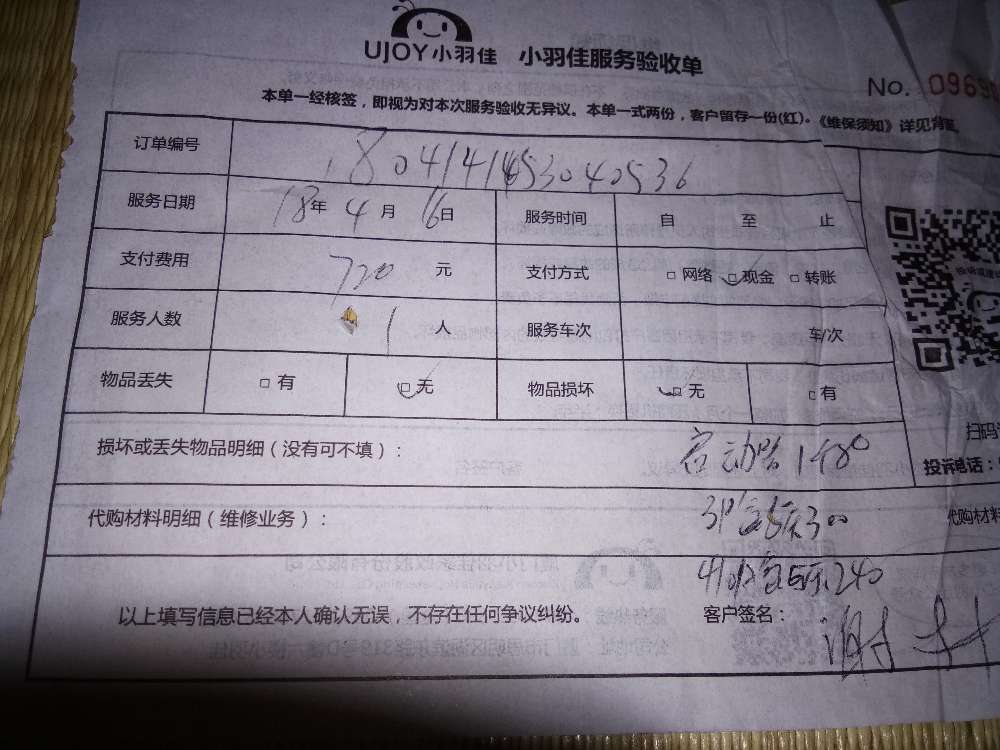 UJOY小羽佳 小羽佳服务验收单
No. 0969
本单一经核签，即视为对本次服务验收无异议。本单一式两份，客户留存一份(红)。《维保须知》详见背面。
订单编号 1804141653040536
服务日期 18年 4月 16日 服务时间 自 至 止
支付费用 720 元 支付方式 □网络 □现金 □转账
服务人数 1 人 服务车次 车/次
物品丢失 □有 □无 物品损坏 □无 □有
损坏或丢失物品明细（没有可不填）： 启动器1480
扫码
投诉电话：
代购材料明细（维修业务）： 300
代购材料
240
以上填写信息已经本人确认无误，不存在任何争议纠纷。 客户签名： 谢